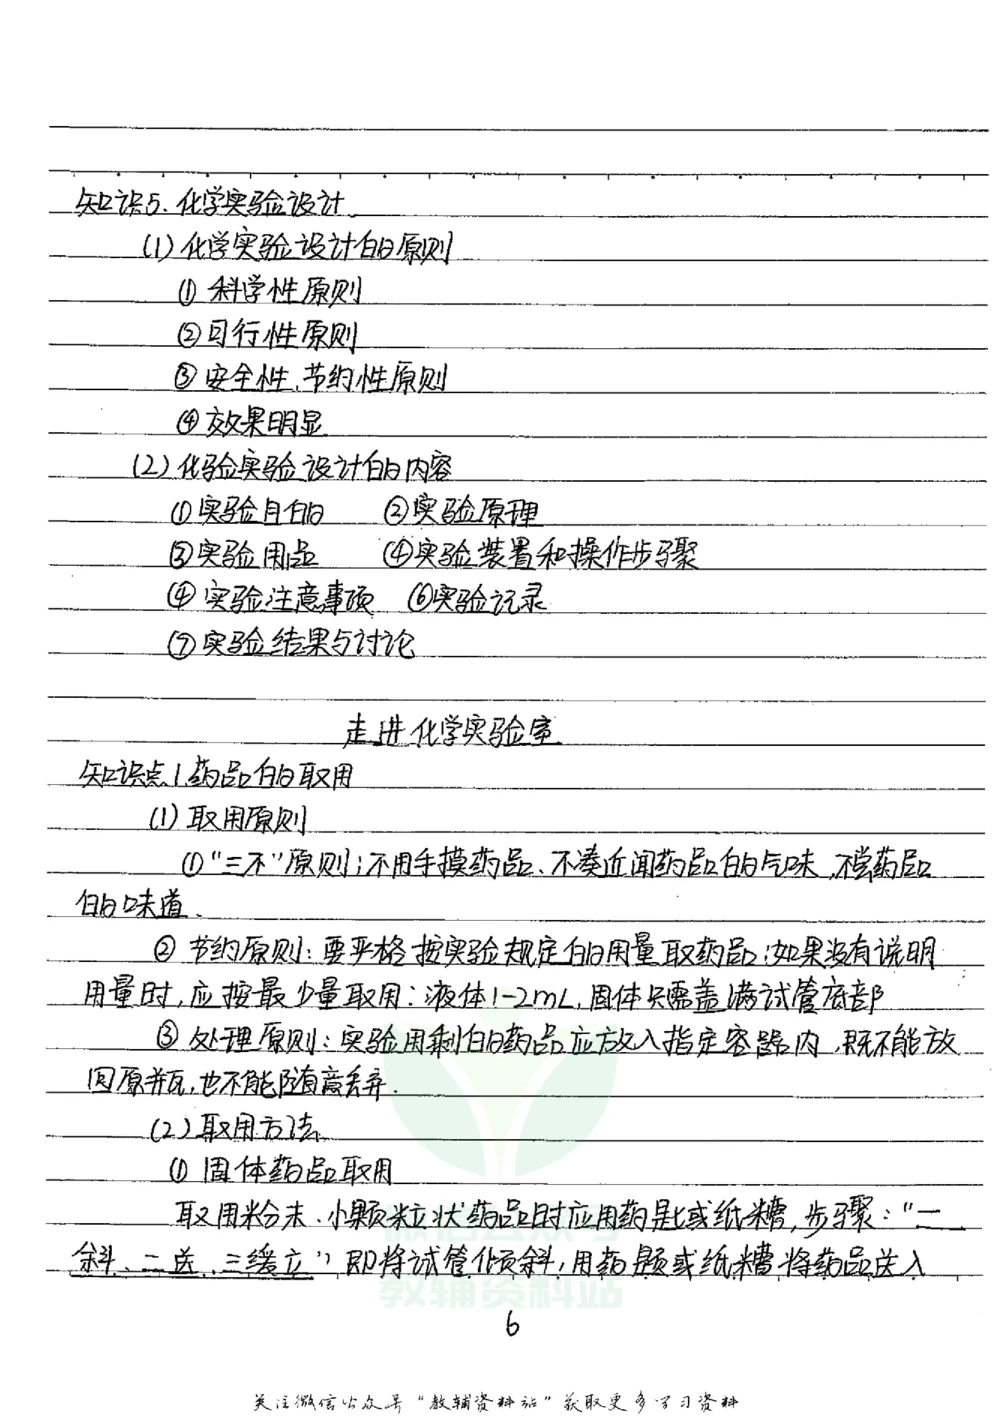 知识5.化学实验设计
(1)化学实验设计的原则
①科学性原则
②可行性原则
③安全性、节约性原则
④效果明显
(2)化验实验设计的内容
①实验目的 ②实验原理
③实验用品 ④实验装置和操作步骤
④实验注意事项 ⑥实验记录
⑦实验结果与讨论
走进化学实验室
知识点1.药品的取用
(1)取用原则
①"三不"原则;不用手摸药品、不凑近闻药品的气味,不尝药品
的味道.
②节约原则:要严格按实验规定的用量取药品;如果没有说明
用量时,应按最少量取用:液体1-2mL,固体只需盖满试管底部
③处理原则:实验用剩的药品应放入指定容器内,既不能放
回原瓶,也不能随意丢弃.
(2)取用方法
①固体药品取用
取用粉末、小颗粒状药品时应用药匙或纸糟,步骤:"一
斜、二送、三缓立",即将试管倾斜,用药题或纸糟将药品送入
微信公众号
教辅资料站
6
关注微信公众号"教辅资料站"获取更多学习资料